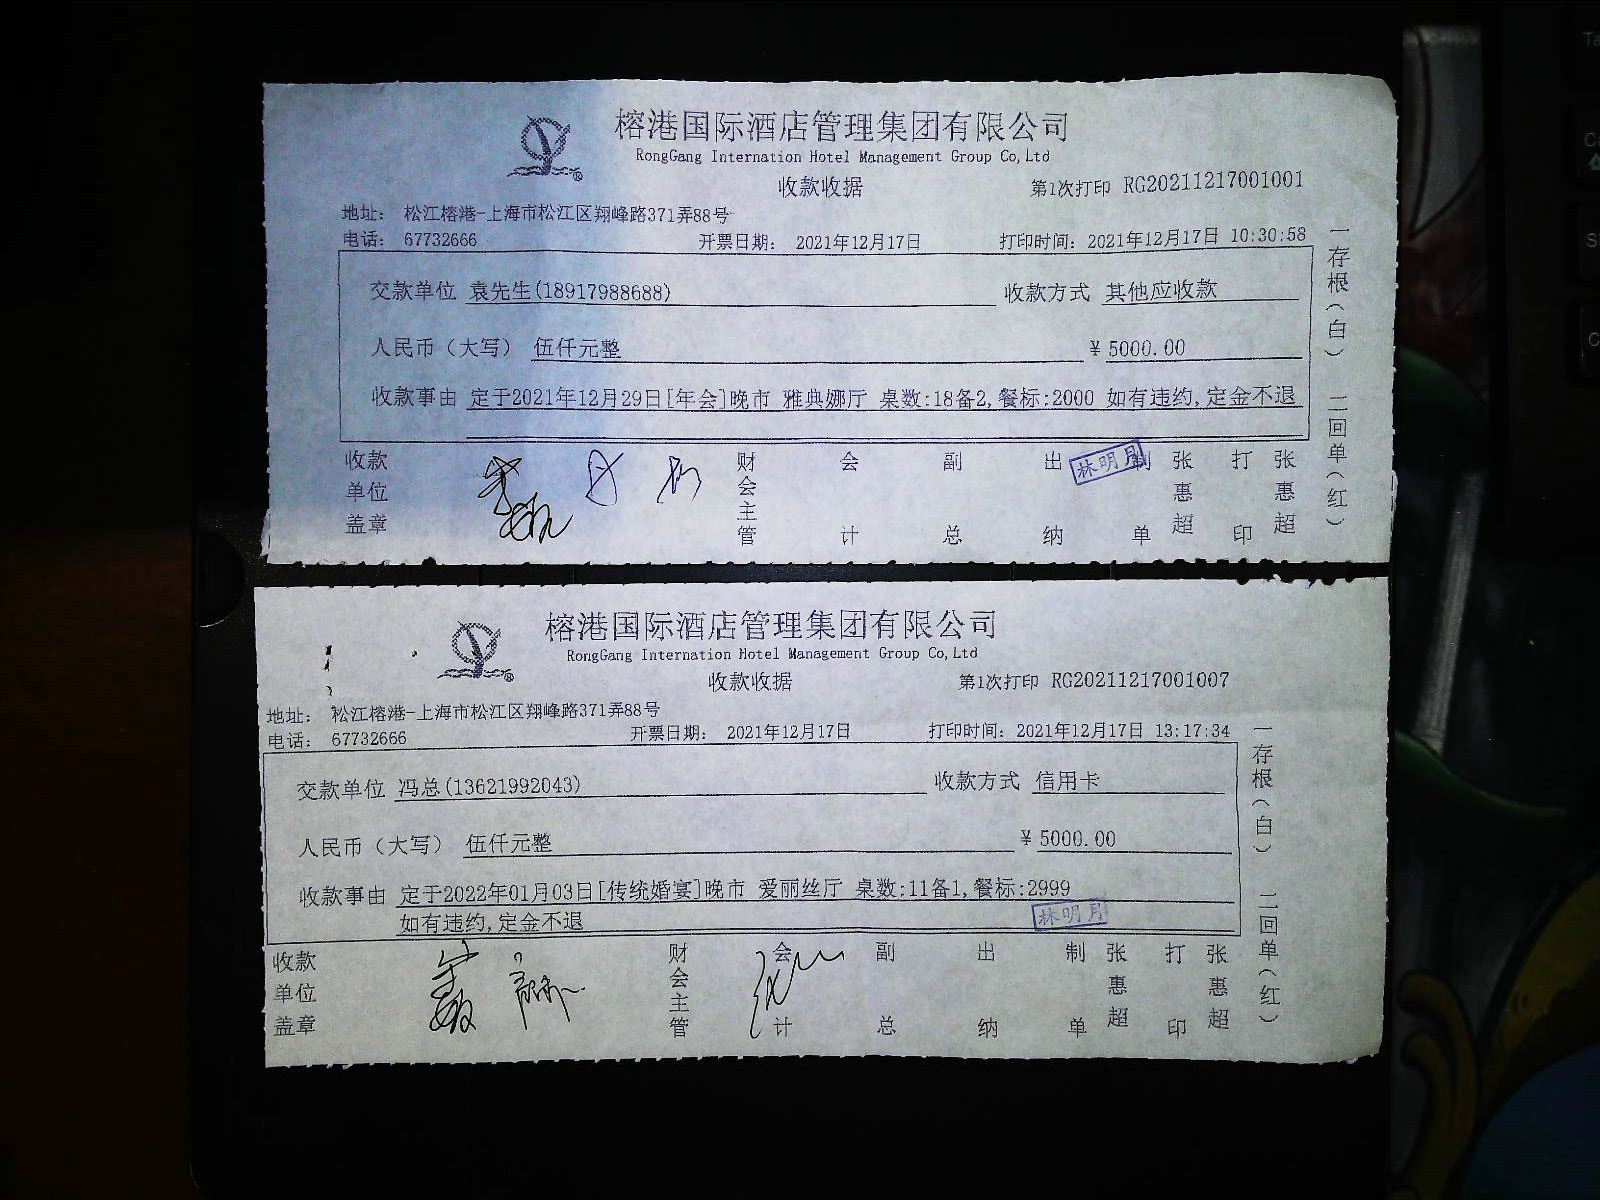 榕港国际酒店管理集团有限公司
RongGang Internation Hotel Management Group Co,Ltd
收款收据 第1次打印 RG20211217001001
地址： 松江榕港-上海市松江区翔峰路371弄88号
电话： 67732666 开票日期： 2021年12月17日 打印时间：2021年12月17日 10:30:58
交款单位 袁先生(18917988688) 收款方式 其他应收款
人民币（大写） 伍仟元整 ¥ 5000.00
收款事由 定于2021年12月29日[年会]晚市 雅典娜厅 桌数:18备2,餐标:2000 如有违约,定金不退
收款单位盖章 财会主管 会计 副总 出纳 林明月 制单 张惠超 打印 张惠超
一存根（白） 二回单（红）
榕港国际酒店管理集团有限公司
RongGang Internation Hotel Management Group Co,Ltd
收款收据 第1次打印 RG20211217001007
地址： 松江榕港-上海市松江区翔峰路371弄88号
电话： 67732666 开票日期： 2021年12月17日 打印时间：2021年12月17日 13:17:34
交款单位 冯总(13621992043) 收款方式 信用卡
人民币（大写） 伍仟元整 ¥ 5000.00
收款事由 定于2022年01月03日[传统婚宴]晚市 爱丽丝厅 桌数:11备1,餐标:2999
如有违约,定金不退 林明月
收款单位盖章 财会主管 会计 副总 出纳 制单 张惠超 打印 张惠超
一存根（白） 二回单（红）